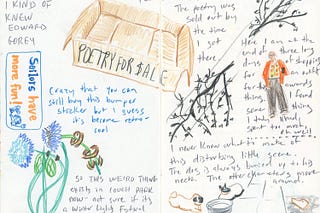 I KIND OF
KNEW
EDWARD
GOREY
POETRY FOR $ALE
Sailors have
more fun!
Crazy that you can
still buy this bumper
sticker but I guess
it's become retro-
cool
SO THIS WEIRD THING
EXISTS IN COUCH PARK
NOW - NOT SURE IF ITS
A WINTER LIGHTS FESTIVAL
The poetry was
sold out by
the time
I got
there.
Here I am at the
end of three long
days of shopping
for an outfit
for the awards
thing. I found
things.
I truly tried,
spent too much,
oh well
I never knew what to make of
this disturbing little scene.
The dog is always buried up to his
neck. The other characters move
around.